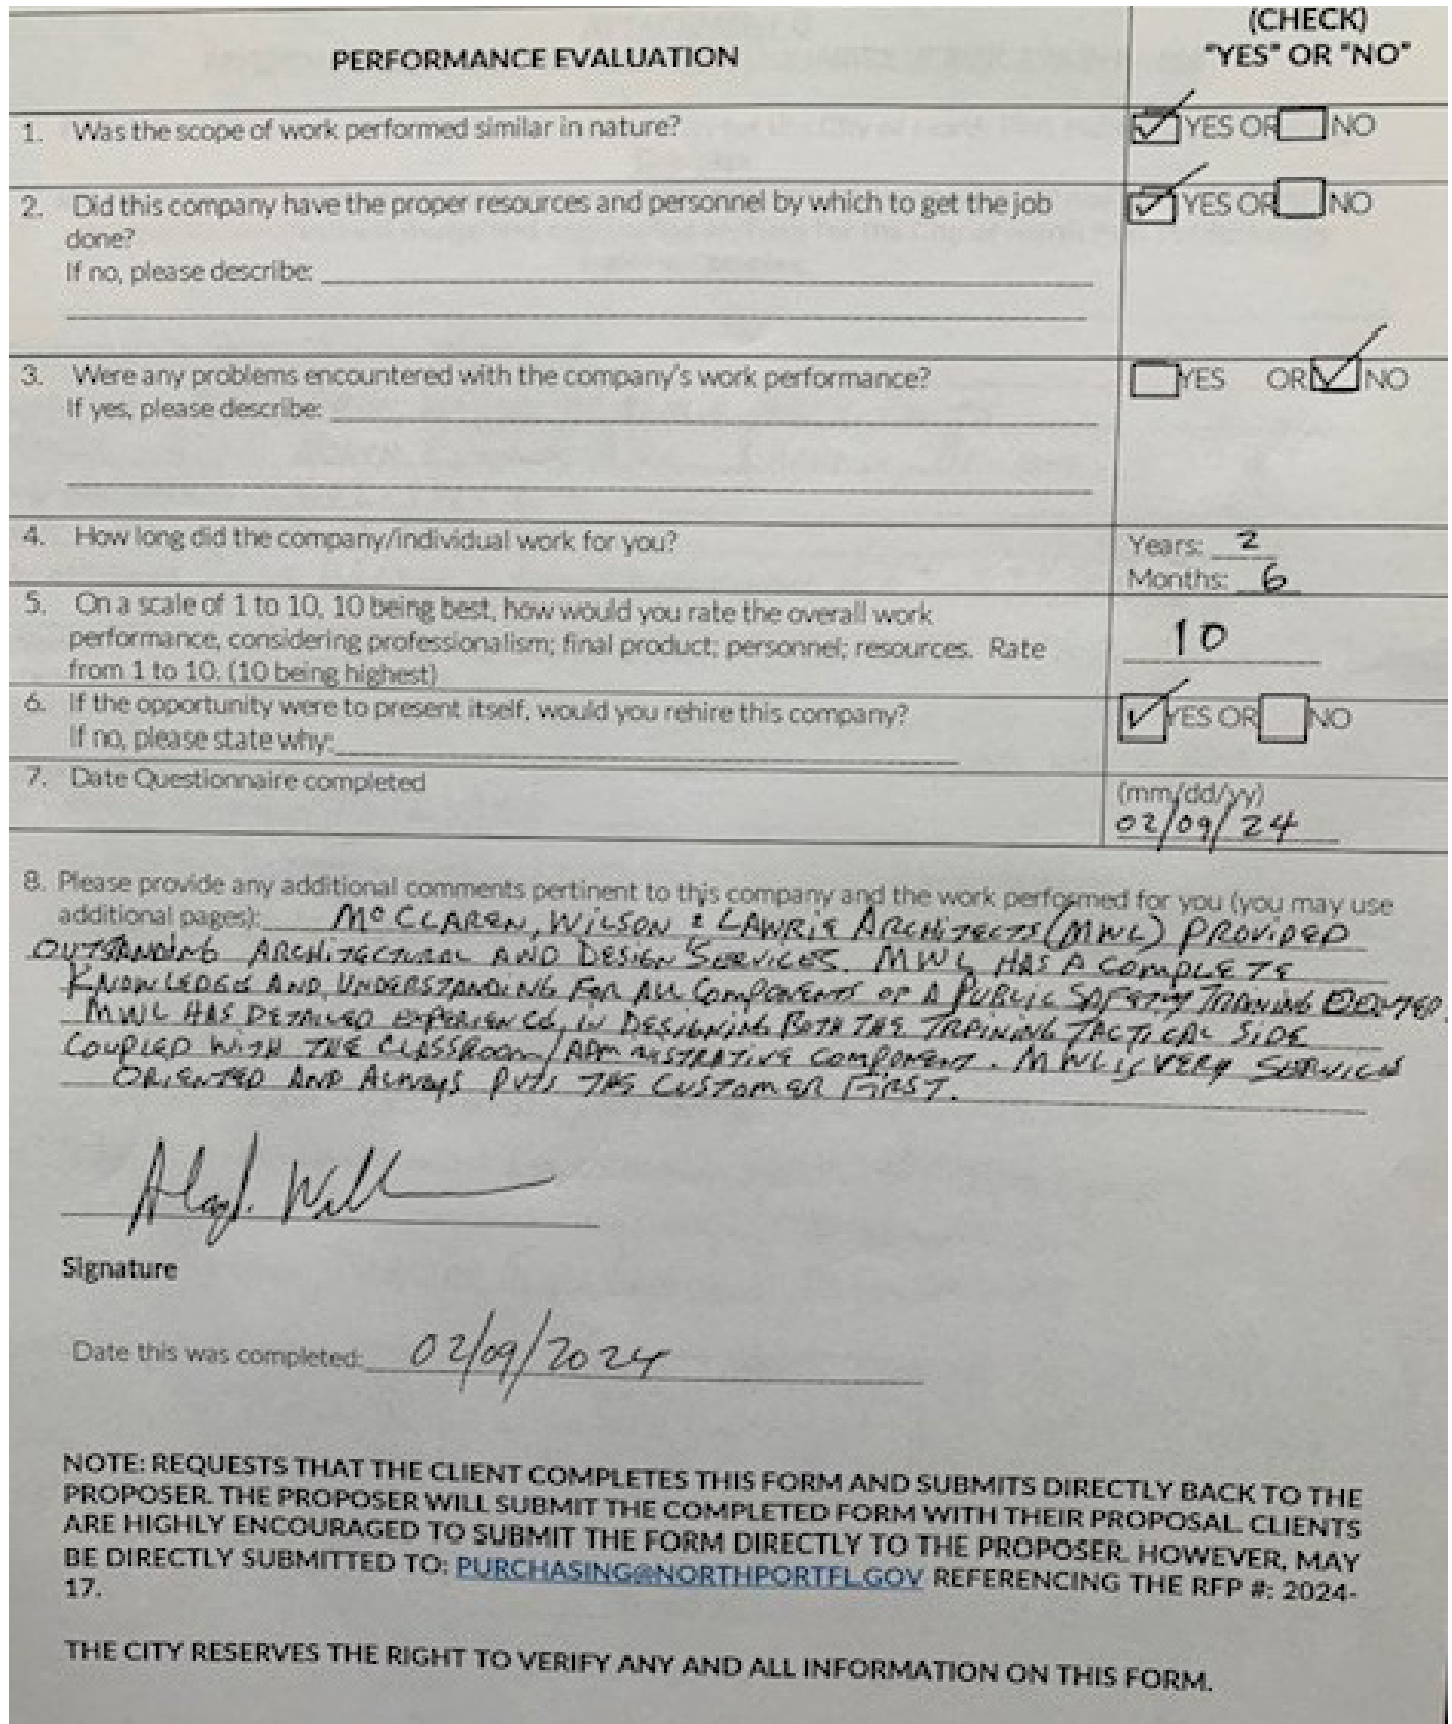 (CHECK)
PERFORMANCE EVALUATION
"YES" OR "NO"
1. Was the scope of work performed similar in nature?
YES OR NO
2. Did this company have the proper resources and personnel by which to get the job
YES OR NO
done?
If no, please describe:
3. Were any problems encountered with the company's work performance?
YES OR NO
If yes, please describe:
4. How long did the company/individual work for you?
Years: 2
Months: 6
5. On a scale of 1 to 10, 10 being best, how would you rate the overall work
performance, considering professionalism; final product; personnel; resources. Rate
from 1 to 10. (10 being highest)
10
6. If the opportunity were to present itself, would you rehire this company?
YES OR NO
If no, please state why:
7. Date Questionnaire completed
(mm/dd/yy)
02/09/24
8. Please provide any additional comments pertinent to this company and the work performed for you (you may use
additional pages): McCLAREN, WILSON & LAWRIE ARCHITECTS (MWL) PROVIDED
OUTSTANDING ARCHITECTURAL AND DESIGN SERVICES. MWL HAS A COMPLETE
KNOWLEDGE AND UNDERSTANDING FOR ALL COMPONENTS OF A PUBLIC SAFETY TRAINING
MWL HAS DETAILED EXPERIENCE IN DESIGNING BOTH THE TRAINING TACTICAL SIDE
COUPLED WITH THE CLASSROOM/ADMINISTRATIVE COMPONENT. MWL IS VERY SERVICE
ORIENTED AND ALWAYS PUTS THE CUSTOMER FIRST.
Signature
Date this was completed: 02/09/2024
NOTE: REQUESTS THAT THE CLIENT COMPLETES THIS FORM AND SUBMITS DIRECTLY BACK TO THE
PROPOSER. THE PROPOSER WILL SUBMIT THE COMPLETED FORM WITH THEIR PROPOSAL. CLIENTS
ARE HIGHLY ENCOURAGED TO SUBMIT THE FORM DIRECTLY TO THE PROPOSER. HOWEVER, MAY
BE DIRECTLY SUBMITTED TO: PURCHASING@NORTHPORTFL.GOV REFERENCING THE RFP #: 2024-
17.
THE CITY RESERVES THE RIGHT TO VERIFY ANY AND ALL INFORMATION ON THIS FORM.